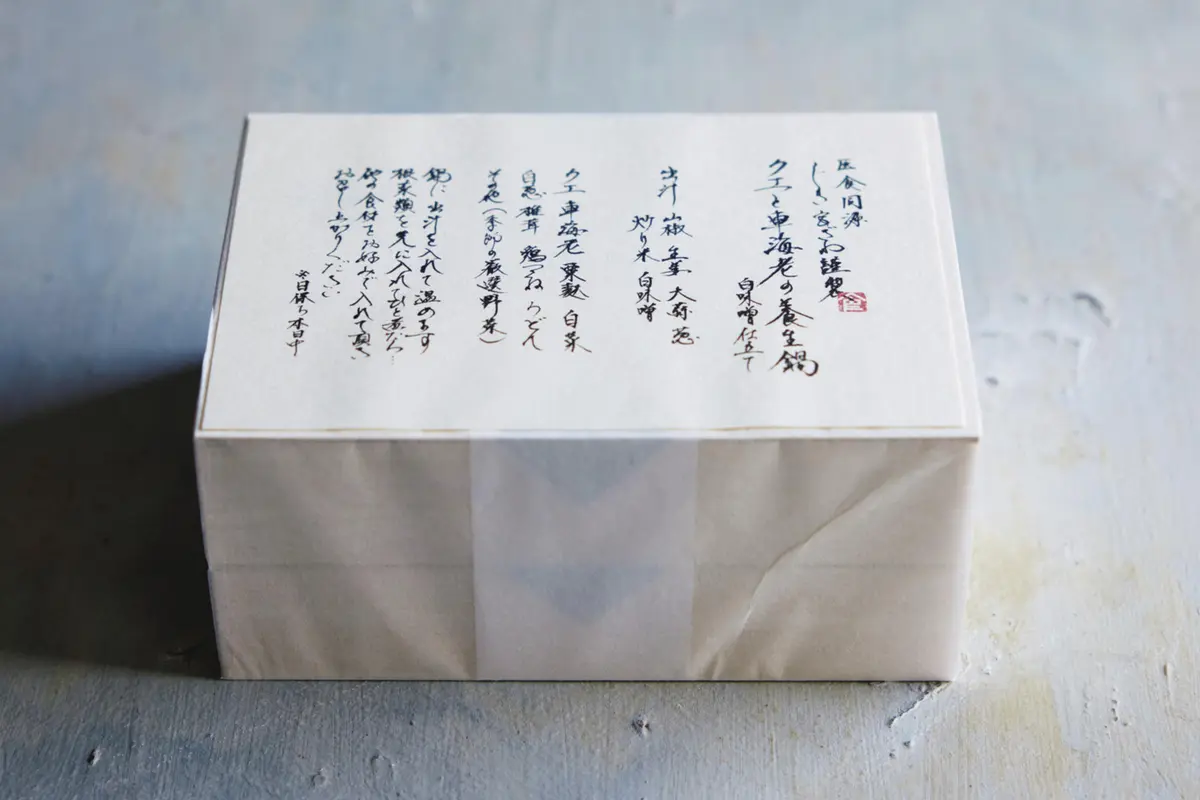 医食同源
じき 宮ざわ謹製
クエと車海老の養生鍋
白味噌仕立て
出汁 山椒 生姜 大蒜 葱
炒り米 白味噌
クエ 車海老 粟麩 白菜
白葱 椎茸 鶏つくね うどん
その他(季節の厳選野菜)
鍋に出汁を入れて温めます
根菜類を先に入れ
他の食材をお好みで入れて頂き
お召し上がりください
※日保ち本日中